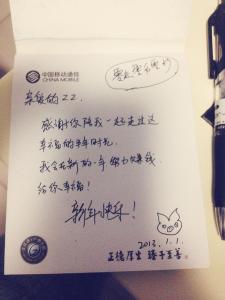 中国移动通信
CHINA MOBILE
亲爱的ZZ.
感谢你陪我一起走过这
幸福的半年时光.
我会在新的一年努力赚钱.
给你幸福!
新年快乐!
2013.1.1.
正德厚生 臻于至善